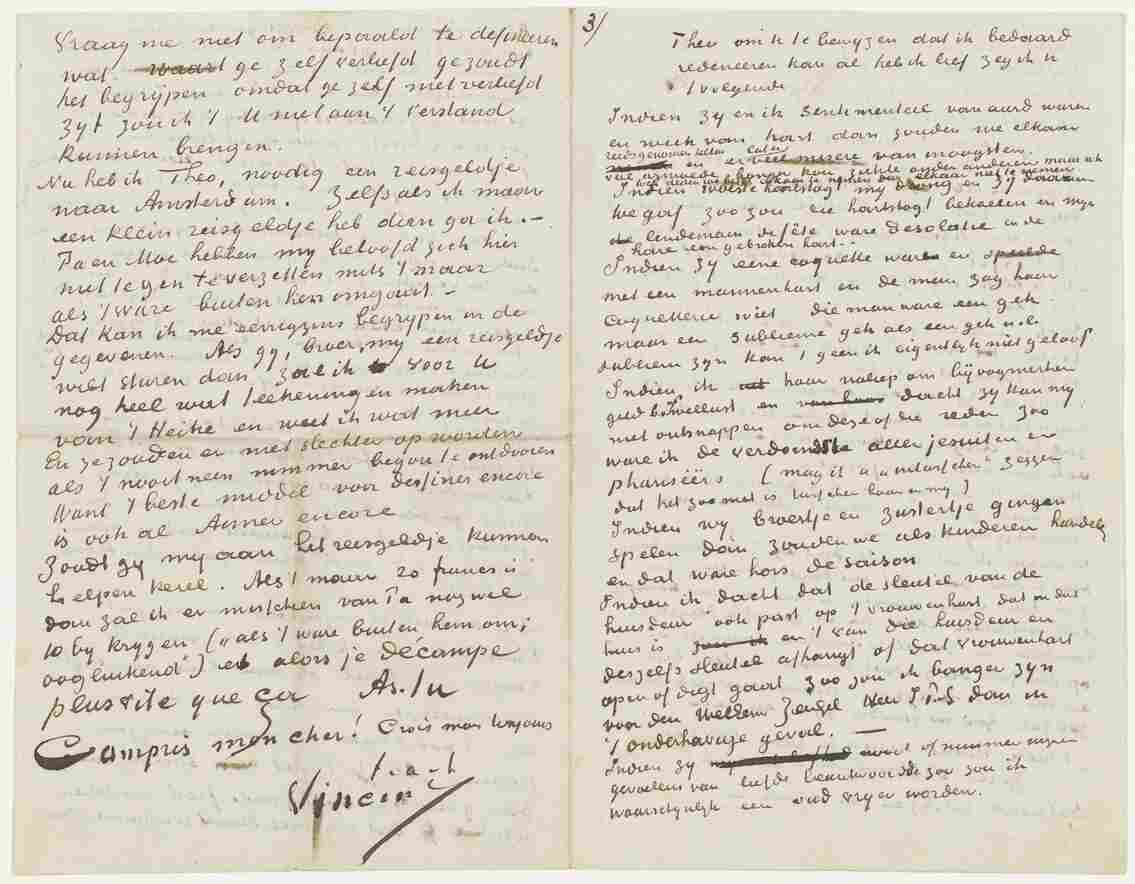 Vraag me niet om bepaald te definieeren
wat waart ge zelf verliefd ge zoudt
het begrijpen omdat ge zelf niet verliefd
zyt zou ik 't U niet aan 't verstand
kunnen brengen.
Nu heb ik Theo, noodig een reisgeldje
naar Amsterdam. Zelfs als ik maar
een klein reisgeldje heb dan ga ik. –
Pa en Moe hebben my beloofd zich hier
niet tegen te verzetten mits 't maar
als 't ware buiten hen omgaat. –
Dat kan ik me eenigzins begrijpen in de
gegevenen. Als gy, broer, my een reisgeldje
wilt sturen dan zal ik voor U
nog heel wat teekeningen maken
van 't Heike en weet ik wat meer
En ze zouden er niet slechter op worden
als 't nooit neen nimmer begon te ontdooien
Want 't beste middel voor dessiner encore
is ook al Aimer encore
Zoudt gy my aan het reisgeldje kunnen
helpen kerel. Als 't maar 20 francs is
dan zal ik er misschien van Pa nog wel
10 by krygen („als 't ware buiten hem om;
oogluikend”) en alors je décampe
plus vite que ça As-tu
Compris mon cher! Crois moi toujours
t. à t.
Vincent
3/
Theo om U te bewyzen dat ik bedaard
redeneeren kan al heb ik lief zeg ik U
't volgende
Indien zy en ik sentimenteel van aard waren
en week van hart dan zouden we elkaar
reisgenooten later
en er veel misere van moogsten.
veel armoede, honger kou ziekte onder anderen maar ook
Indien woeste hartstogt my drang en zy daaraan
toegaf zoo zou die hartstogt bekoelen en myn
lendemain de fête ware desolatie en de
hare een gebroken hart. –
Indien zy eene coquette ware en speelde
met een mannenhart en de man zag haar
coquetterie niet die man ware een gek.
maar een sublieme gek als een gek n.l.
subliem zyn kan 't geen ik eigentlyk niet geloof
Indien ik haar naliep om bijoogmerken
geld b.v. wellust en dacht zy kan my
niet ontsnappen om deze of die reden zoo
ware ik de verdoemdste aller jesuiten en
phariseërs (mag ik u a antusschen zeggen
dat het zoo niet is tusschen haar en my)
Indien wy broertje en zustertje gingen
spelen dan zouden we als kinderen handelen
en dat ware hors de saison
Indien ik dacht dat de sleutel van de
huisdeur ook past op 't vrouwenhart, dat in dat
huis is en 't van die huisdeur en
deszelfs sleutel afhangt of dat vrouwenhart
open of digt gaat zoo zou ik banger zyn
voor den dan in
't onderhavige geval. —
Indien zy nooit of nimmer myn
gevoelens van liefde beantwoordde zoo zou ik
waarschynlyk een oud vryer worden.